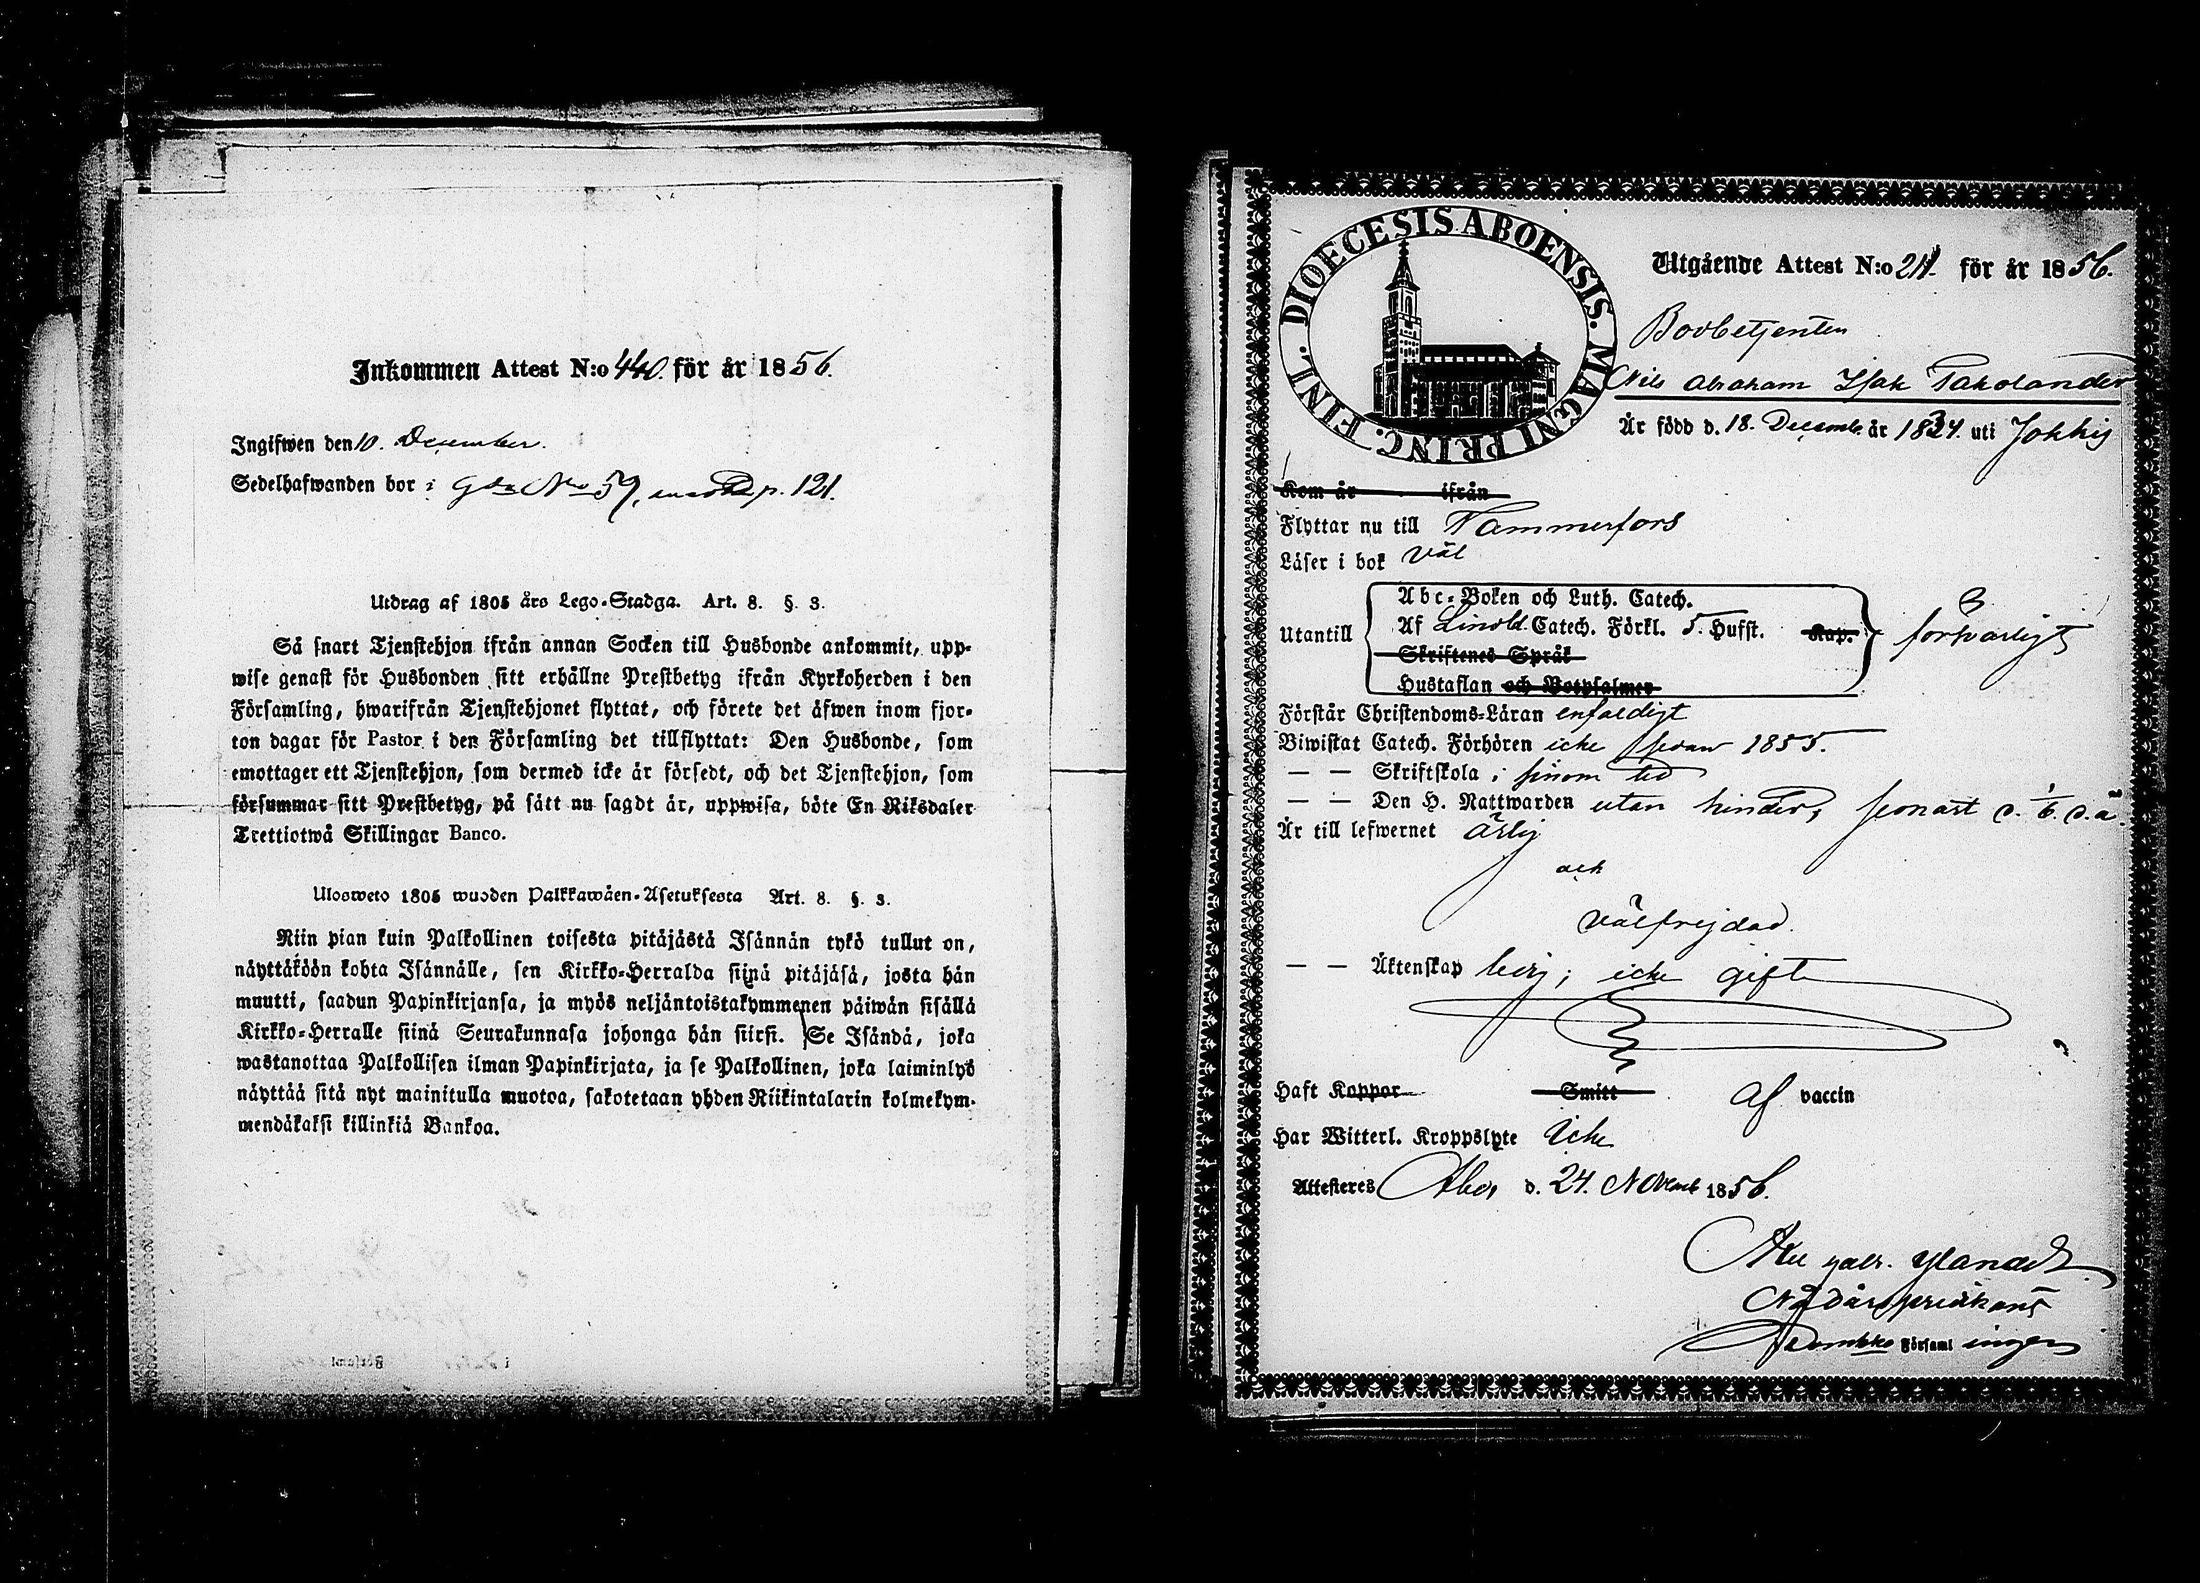 Inkommen Attest N:o 440. för år 1856.
Ingifwen den 10. December.
Sedelhafwanden bor i Gdn No 57, p. 121.
Utdrag af 1805 års Lego-Stadga. Art. 8. §. 3.
Så snart Tjenstehjon ifrån annan Socken till Husbonde ankommit, upp-
wise genast för Husbonden sitt erhållne Prestbetyg ifrån Kyrkoherden i den
Församling, hwarifrån Tjenstehjonet flyttat, och förete det äfwen inom fjor-
ton dagar för Pastor i den Församling det tillflyttat: Den Husbonde, som
emottager ett Tjenstehjon, som dermed icke är försedt, och det Tjenstehjon, som
försummar sitt Prestbetyg, på sätt nu sagdt är, uppwisa, böte En Riksdaler
Trettiotwå Skillingar Banco.
Ulosweto 1805 wuoden Palkkawäen-Asetuksesta Art. 8. §. 3.
Niin pian kuin Palkollinen toisesta pitäjästä Isännän tykö tullut on,
näyttäköön kohta Isännälle, sen Kirkko-Herralda siinä pitäjäsä, josta hän
muutti, saadun Papinkirjansa, ja myös neljäntoistakymmenen päiwän sisällä
Kirkko-Herralle siinä Seurakunnasa johonga hän siirsi. Se Isändä, joka
wastanottaa Palkollisen ilman Papinkirjata, ja se Palkollinen, joka laiminlyö
näyttää sitä nyt mainitulla muotoa, sakotetaan yhden Riikintalarin kolmekym-
mendäkaksi killinkiä Bankoa.
DIOECESIS ABOENSIS. MAGNI PRINC. FINL.
Utgående Attest N:o 211. för år 1856.
Bodbetjenten
Nils Abraham Isak Takolander
Är född d. 18. Decemb. år 1834. uti Jokkis
Kom år ifrån
Flyttar nu till Tammerfors
Läser i bok väl
Abc-Boken och Luth. Catech.
Utantill Af Linobl. Catech. Förkl. 5. Hufst. Kap. försvarligt
Skriftenes Språk
Hustaflan och Botpsalmer
Förstår Christendoms-Läran enfaldigt
Biwistat Catech. Förhören icke sedan 1855.
— — Skriftskola i sinom tid
— — Den H. Nattwarden utan hinder, senast d. 1/6. d. å.
Är till lefwernet ärlig
och
välfrejdad.
— — Äktenskap ledig; icke gift
Haft Koppor Smitt af vaccin
Har Witterl. Kroppslyte Icke
Attesteres Åbo, d. 24. Novemb 1856.
Abr Gabr. Ylander
Nådårspredikant
Församl ingen